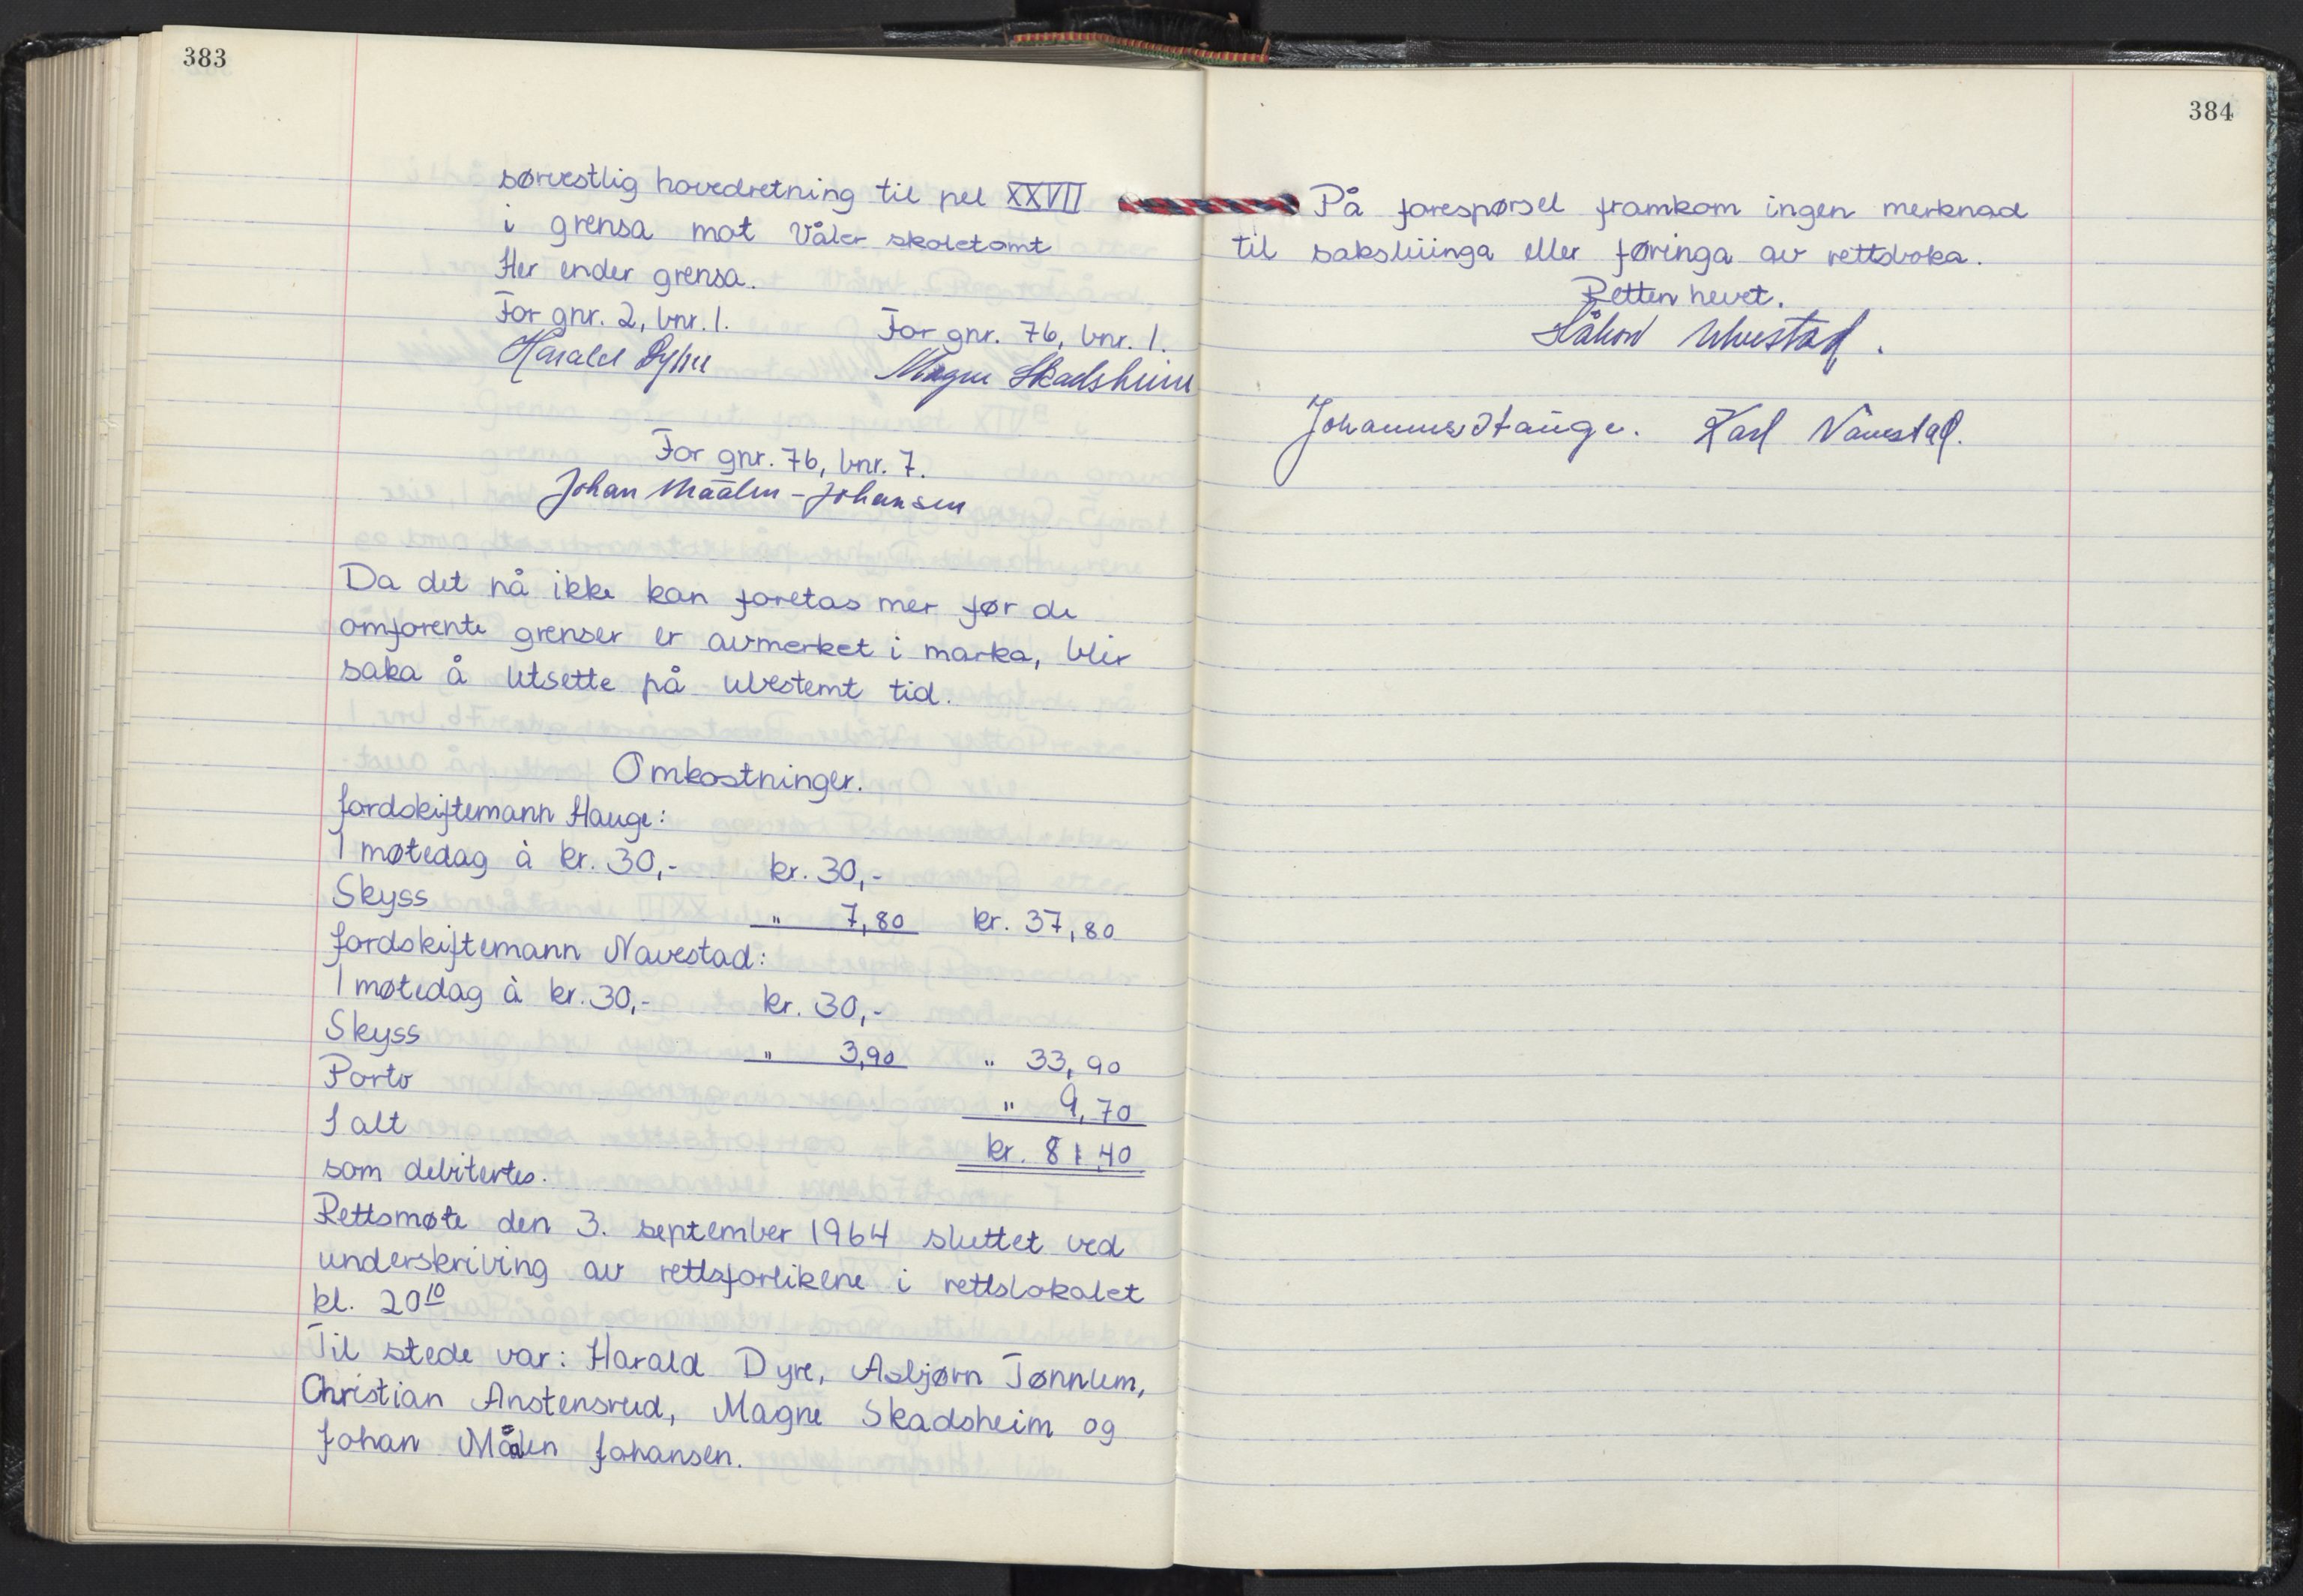 383
sørvestlig hovedretning til pel XXVII
i grensa mot Våler skoletomt
Her ender grensa.
For gnr. 2, bnr. 1. For gnr. 76, bnr. 1.
Harald Dyre Magne Skadsheim
For gnr. 76, bnr. 7.
Johan Maalen-Johansen
Da det nå ikke kan foretas mer før de
omforente grenser er avmerket i marka, blir
saka å utsette på ubestemt tid.
Omkostninger.
Jordskiftemann Hauge:
1 møtedag à kr. 30,- kr. 30,-
Skyss " 7,80 kr. 37,80
Jordskiftemann Navestad:
1 møtedag à kr. 30,- kr. 30,-
Skyss " 3,90 " 33,90
Porto " 9,70
I alt kr. 81,40
som debitertes.
Rettsmøte den 3. september 1964 sluttet ved
underskriving av rettsforlikene i rettslokalet
kl. 20¹⁰
Til stede var: Harald Dyre, Asbjørn Tønnum,
Christian Anstensrud, Magne Skadsheim og
Johan Målen Johansen.
384
På forespørsel framkom ingen merknad
til saksliinga eller føringa av rettsboka.
Retten hevet.
Håkon
Johannes Hauge. Karl Navestad.